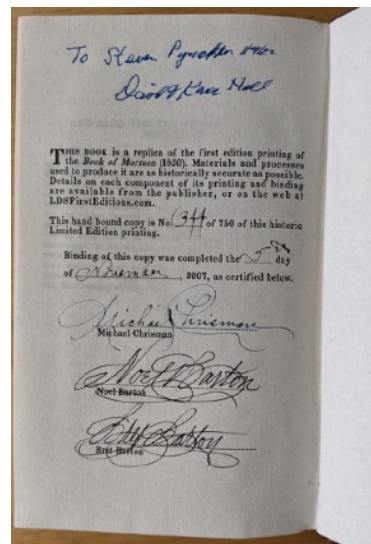 To Steven
David & Karen Hall
THIS BOOK is a replica of the first edition printing of
the Book of Mormon (1830). Materials and processes
used to produce it are as historically accurate as possible.
Details on each component of its printing and binding
are available from the publisher, or on the web at
LDSFirstEditions.com.
This hand bound copy is No. of 750 of this historic
Limited Edition printing.
Binding of this copy was completed the 5th day
of November, 2007, as certified below.
Michael Chrisman
Michael Chrisman
Noel R Barton
Noel Barton
Bret Barton
Bret Barton